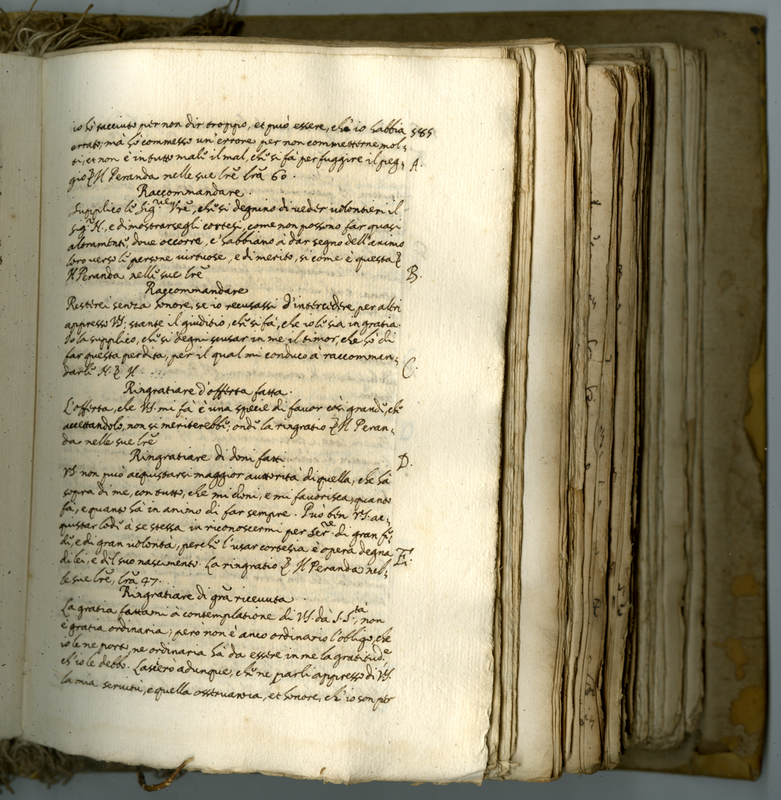 io hò tacciuto per non dir troppo, et può essere, ch'io habbia 585
errato, mà hò commesso un'errore per non commetterne mol-
ti, et non è in tutto male il mal, che si fà per fuggire il peg- A.
gio Il Peranda nelle sue lre lra 60.
Raccommandare.
Supplico le Sigrie Vre, che si degnino di veder volontieri il
Sigr N. e dimostrarsegli cortesi, come non possono far quasi
altramente, dove occorre, c'habbiano à dar segno dell'animo
loro verso le persone virtuose, e di merito, si come è questa
Il Peranda nelle sue lre B.
Raccommandare
Resterei senza honore, se io recusassi d'intercedere per altri
appresso VS. stante il giuditio, che si fà, che io le sia in gratia
Io la supplico, che si degni scusar in me il timor, che hò di
far questa perdita, per il qual mi conduco à raccomman- C.
darle N. Il ...
Ringratiare d'offerta fatta.
L'offerta, che VS. mi fà è una specie di favor così grande, che
accettandolo, non si meriterebbe, onde la ringratio Il Peran-
da nelle sue lre
Ringratiare di doni fatti D.
VS. non può acquistarsi maggior auttorità di quella, che hà
sopra di me, con tutto, che mi doni, e mi favorisca, quanto
fà, e quanto hà in animo di far sempre. Può ben VS. ac-
quistar lode à se stessa in riconoscermi per serre di gran fe-
de, e di gran volontà, perche l'usar cortesia è opera degna E.
di lei, e del suo nascimento. La ringratio Il Peranda nel-
le sue lre, lra 47.
Ringratiare di gra ricevuta
La gratia fattami à contemplatione di VS. da S. Sta, non
è gratia ordinaria, però non è anco ordinario l'obligo, che
io le ne porto, ne ordinaria hà da essere in me la gratitude
ch'io le debbo. Lasciero adunque, che ne parli appresso di VS.
la mia servitù, e quella osservanza, et honore, ch'io son per